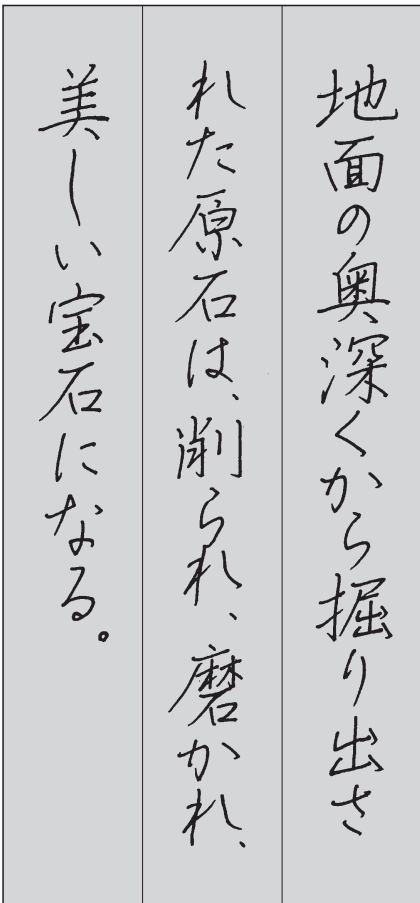 地面の奥深くから掘り出さ
れた原石は、削られ、磨かれ、
美しい宝石になる。